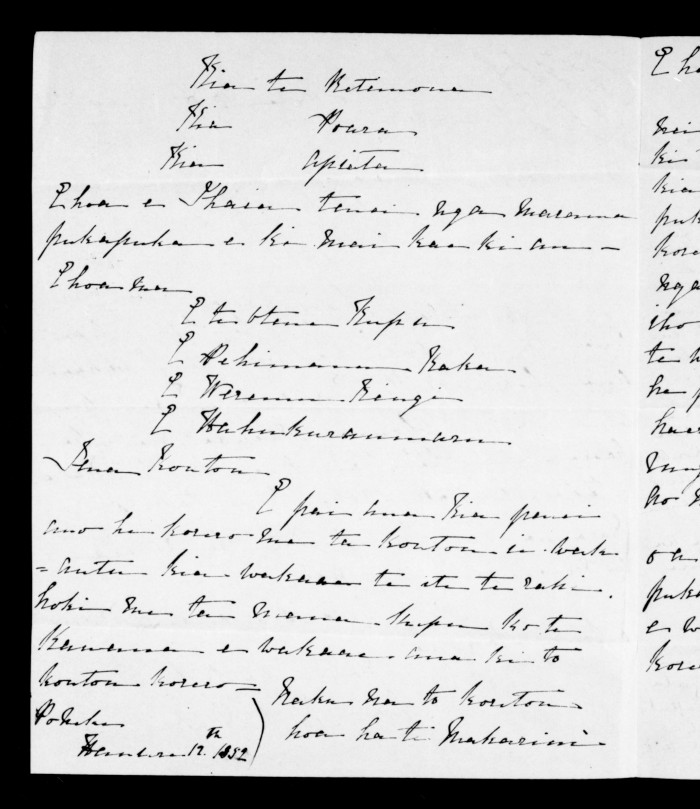 Kia te Retimona
Kia Poara
Kia Apiata
E hoa e Ihaia tenei nga marama
pukapuka e ki mai
E hoa ma
E te Otene Kupa
E Pehimana Kaka
E Wiremu Kingi
E Hakukuraumaru
Tena Koutou
E pai ana kia penei
ano he korero ma ta koutou e wak
=autu kia wakaaa te iti te rahi.
hoki me ta mana kupu ko te
Kawana e wakaae ana ki to
koutou korero=
Naku na to koutou
hoa ha te Makarini
Poneke
12th 1852
E ho
nei
ki
kia
puk
kore
nga
iho
te w
he p
haer
ko
o a
puka
e w
kore